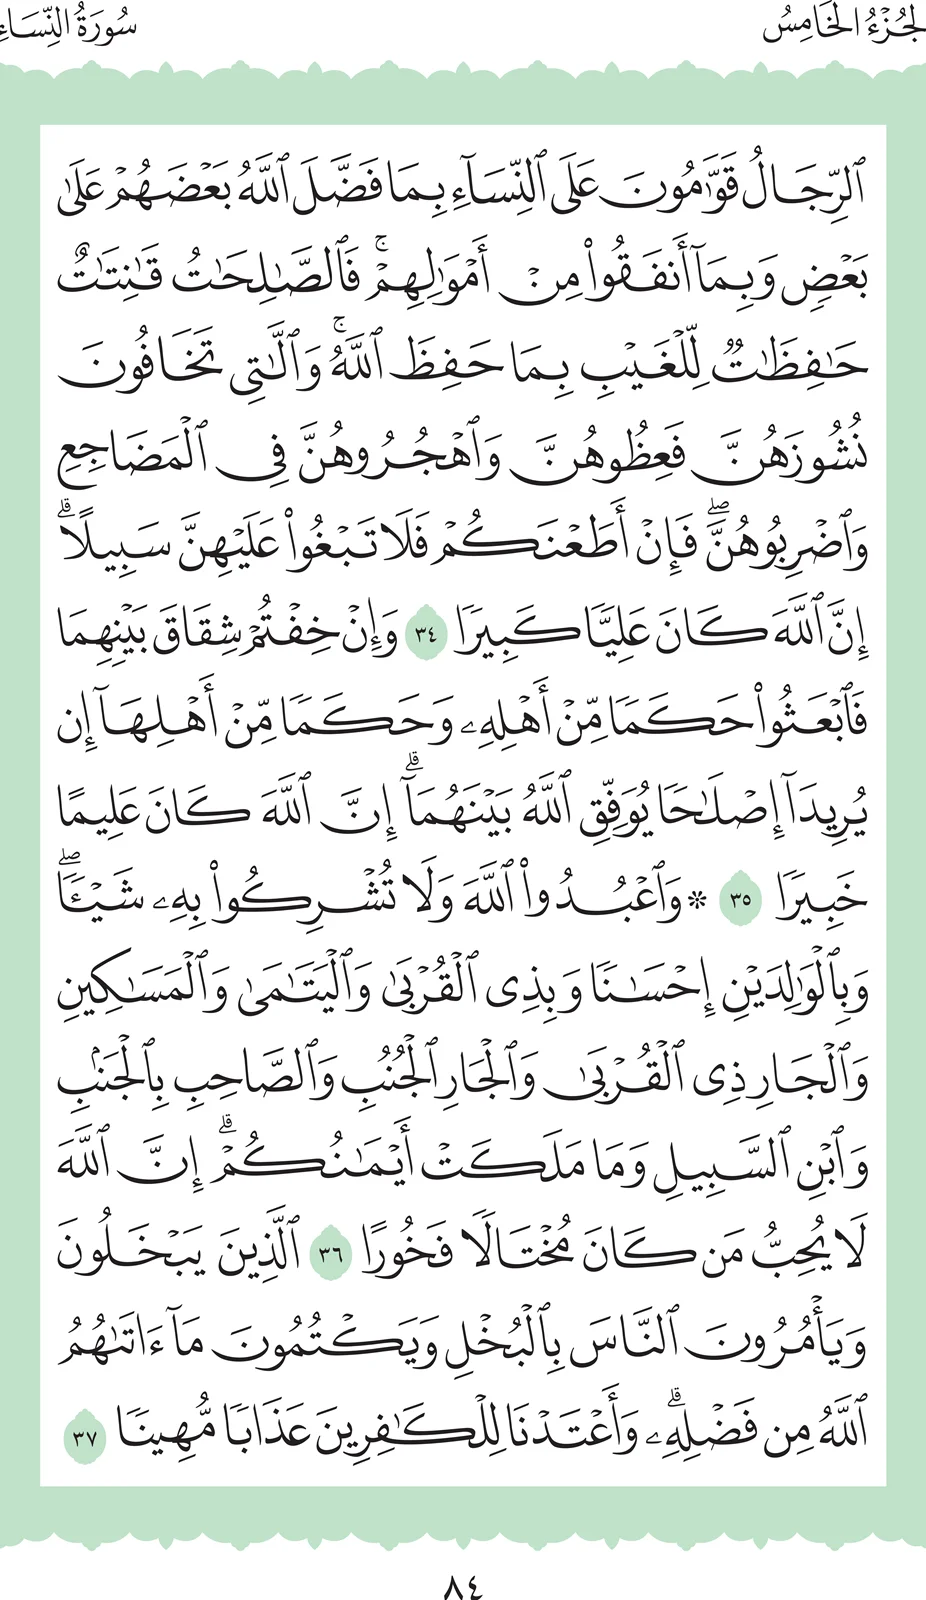 الجُزْءُ الخَامِسُ
سُورَةُ النِّسَاءِ
ٱلرِّجَالُ قَوَّٰمُونَ عَلَى ٱلنِّسَآءِ بِمَا فَضَّلَ ٱللَّهُ بَعْضَهُمْ عَلَىٰ
بَعْضٖ وَبِمَآ أَنفَقُواْ مِنْ أَمْوَٰلِهِمْۚ فَٱلصَّٰلِحَٰتُ قَٰنِتَٰتٌ
حَٰفِظَٰتٞ لِّلْغَيْبِ بِمَا حَفِظَ ٱللَّهُۚ وَٱلَّٰتِي تَخَافُونَ
نُشُوزَهُنَّ فَعِظُوهُنَّ وَٱهْجُرُوهُنَّ فِي ٱلْمَضَاجِعِ
وَٱضْرِبُوهُنَّۖ فَإِنْ أَطَعْنَكُمْ فَلَا تَبْغُواْ عَلَيْهِنَّ سَبِيلًاۗ
إِنَّ ٱللَّهَ كَانَ عَلِيّٗا كَبِيرٗا ٣٤ وَإِنْ خِفْتُمْ شِقَاقَ بَيْنِهِمَا
فَٱبْعَثُواْ حَكَمٗا مِّنْ أَهْلِهِۦ وَحَكَمٗا مِّنْ أَهْلِهَآ إِن
يُرِيدَآ إِصْلَٰحٗا يُوَفِّقِ ٱللَّهُ بَيْنَهُمَآۗ إِنَّ ٱللَّهَ كَانَ عَلِيمًا
خَبِيرٗا ٣٥ ۞ وَٱعْبُدُواْ ٱللَّهَ وَلَا تُشْرِكُواْ بِهِۦ شَيْـٔٗاۖ
وَبِٱلْوَٰلِدَيْنِ إِحْسَٰنٗا وَبِذِي ٱلْقُرْبَىٰ وَٱلْيَتَٰمَىٰ وَٱلْمَسَٰكِينِ
وَٱلْجَارِ ذِي ٱلْقُرْبَىٰ وَٱلْجَارِ ٱلْجُنُبِ وَٱلصَّاحِبِ بِٱلْجَنۢبِ
وَٱبْنِ ٱلسَّبِيلِ وَمَا مَلَكَتْ أَيْمَٰنُكُمْۗ إِنَّ ٱللَّهَ
لَا يُحِبُّ مَن كَانَ مُخْتَالٗا فَخُورًا ٣٦ ٱلَّذِينَ يَبْخَلُونَ
وَيَأْمُرُونَ ٱلنَّاسَ بِٱلْبُخْلِ وَيَكْتُمُونَ مَآ ءَاتَىٰهُمُ
ٱللَّهُ مِن فَضْلِهِۦۗ وَأَعْتَدْنَا لِلْكَٰفِرِينَ عَذَابٗا مُّهِينٗا ٣٧
٨٤